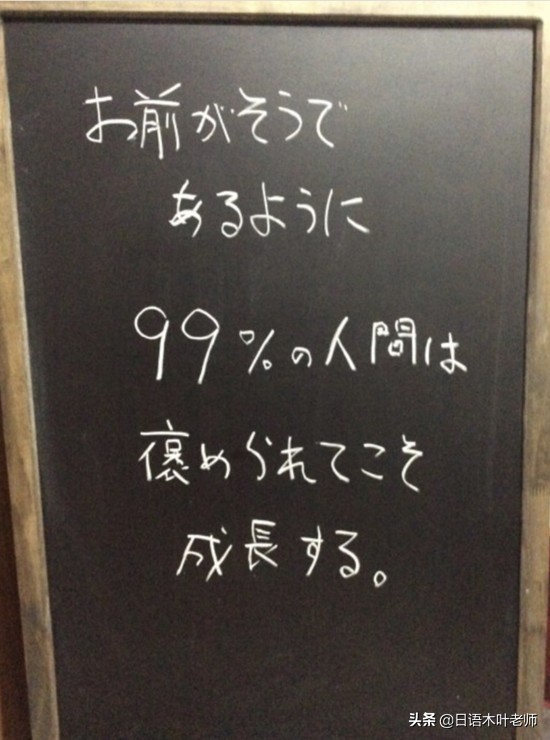 お前がそうで
あるように
99%の人間は
褒められてこそ
成長する。
头条 @日语木叶老师